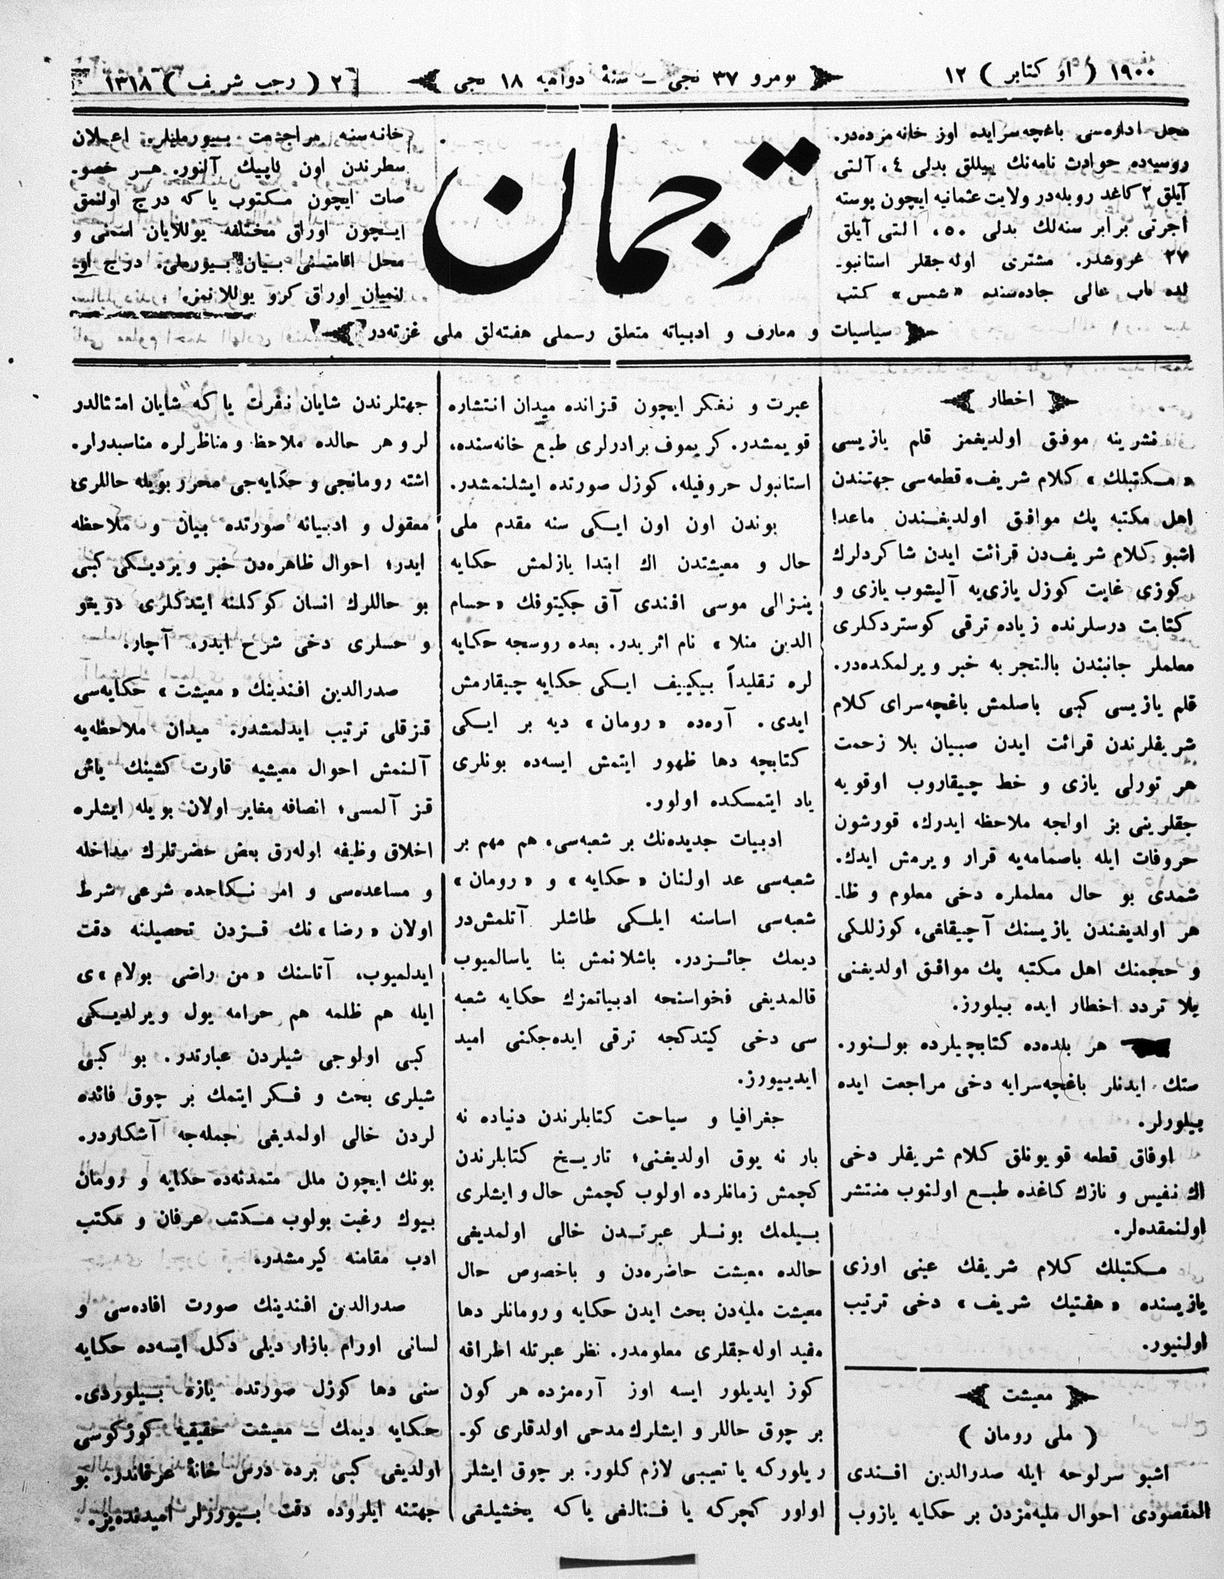 ١٩٠٠ ( او كتابر ) ١٢
نومرو ٣٧ نجى — سنهٔ دواميه ١٨ نجى
٢ ( رجب شريف ) ١٣١٨
محل اداره‌سى باغچه‌سرايده اوز خانه مزده‌در.
روسيه‌ده حوادث نامه‌نك ييللق بدلى ٤، آلتى
آيلق ٢ كاغد روبله‌در ولايت عثمانيه ايچون پوسته
اجرتى برابر سنه‌لك بدلى ٥٠، التى آيلق
٢٧ غروشدر. مشترى اوله‌جقلر استانبو-
لده باب عالى جاده‌سنده «شمس» كتب
خانه‌سنه مراجعت بيورملنلر. اعلان
سطرندن اون ڭاپيك آلنور. هر خصو-
صات ايچون مكتوب ياكه درج اولنمق
ايچون اوراق مختلفه يوللايان اسمنى و
محل اقامتنى بيان بيورملى، درج او-
لنميان اوراق كرو يوللانمز.
ترجمان
سياسيات و معارف و ادبياته متعلق رسملى هفته‌لق ملى غزته‌در
اخطار
نشرينه موفق اولديغمز قلم يازيسى
«مكتبلك» كلام شريف، قطعه‌سى جهتندن
اهل مكتبه پك موافق اولديغندن ماعدا
اشبو كلام شريف‌دن قرائت ايدن شاكردلرك
كوزى غايت كوزل يازى‌يه آليشوب يازى و
كتابت درسلرنده زياده ترقى كوستردكلرى
معلملر جانبندن بالتجربه خبر ويرلمكده‌در.
قلم يازيسى كبى باصلمش باغچه‌سراى كلام
شريفلرندن قرائت ايدن صبيان بلا زحمت
هر تورلى يازى و خط چيقاروب اوقويه
جقلرينى بز اولجه ملاحظه ايدرك، قورشون
حروفات ايله باصمامه‌يه قرار ويرمش ايدك.
شمدى بو حال معلملره دخى معلوم و ظا-
هر اولديغندن يازيسنك آچيقلغى، كوزللكى
و حجمنك اهل مكتبه پك موافق اولديغنى
بلا تردد اخطار ايده بيلورز.
هر بلده‌ده كتابچيلرده بولنور.
ستك ايدنلر باغچه‌سرايه دخى مراجعت ايده
بيلورلر.
اوفاق قطعه قويونلق كلام شريفلر دخى
اك نفيس و نازك كاغده طبع اولنوب منتشر
اولنمقده‌لر.
مكتبلك كلام شريفك عينى اوزى
يازيسنده «هفتيك شريف» دخى ترتيب
اولنيور.
معيشت
( ملى رومان )
اشبو سرلوحه ايله صدرالدين افندى
المقصودى احوال مليه‌مزدن بر حكايه يازوب
عبرت و تفكر ايچون قزانده ميدان انتشاره
قويمشدر. كريموف برادرلرى طبع خانه‌سنده،
استانبول حروفيله، كوزل صورتده ايشلنمشدر.
بوندن اون اون ايكى سنه مقدم ملى
حال و معيشتدن اك ابتدا يازلمش حكايه
پنزالى موسى افندى آق جكيتوفك «حسام
الدين منلا» نام اثريدر. بعده روسجه حكايه
لره تقليداً بيكييف ايكى حكايه چيقارمش
ايدى. آره‌ده «رومان» ديه بر ايكى
كتابچه دها ظهور ايتمش ايسه‌ده بونلرى
ياد ايتمسكده اولور.
ادبيات جديده‌نك بر شعبه‌سى، هم مهم بر
شعبه‌سى عد اولنان «حكايه» و «رومان»
شعبه‌سى اساسنه ايلكى طاشلر آتلمش‌در
ديمك جائزدر. باشلانمش بنا ياسالميوب
قالمديغى فخواسنجه ادبياتمزك حكايه شعبه
سى دخى كيتدكجه ترقى ايده‌جكنى اميد
ايدييورز.
جغرافيا و سياحت كتابلرندن دنياده نه
بار نه يوق اولديغنى؛ تاريخ كتابلرندن
كچمش زمانلرده اولوب كچمش حال و ايشلرى
بيلمك بونلر عبرتدن خالى اولمديغى
حالده معيشت حاضره‌دن و باخصوص حال
معيشت مليه‌دن بحث ايدن حكايه و رومانلر دها
مفيد اوله‌جقلرى معلومدر. نظر عبرتله اطرافه
كوز ايديلور ايسه اوز آره‌مزده هر كون
بر چوق حاللر و ايشلرك مدحى اولدقلرى كو-
ريلوركه يا تعييبى لازم كلور. بر چوق ايشلر
اولور كچركه يا فنالغى ياكه يخشيلغى
جهتلرندن شايان نفرت ياكه شايان امتثالدر
لر و هر حالده ملاحظه و مناظرلره مناسبدرلر.
اشته رومانجى و حكايه‌جى محرر بويله حاللرى
معقول و ادبيانه صورتده بيان و ملاحظه
ايدر؛ احوال ظاهره‌دن خبر ويرديكى كبى
بو حاللرك انسان كوكلنه ايتدكلرى دويغو
و حسلرى دخى شرح ايدر، آچار.
صدرالدين افندينك «معيشت» حكايه‌سى
قزقلى ترتيب ايدلمشدر. ميدان ملاحظه‌يه
آلنمش احوال معيشيه قارت كشينك ياش
قز آلمسى؛ انصافه مغاير اولان بويله ايشلره
اخلاق وظيفه اوله‌رق بعض حضرتلرك مداخله
و مساعده‌سى و امر نكاحده شرعى شرط
اولان «رضا»نك قزدن تحصيلنه دقت
ايدلميوب، آتاسنك «من راضى بولام»ى
ايله هم ظلمه هم حرامه يول ويرلديكى
كبى اولوجى شيلردن عبارتدر. بو كبى
شيلرى بحث و فكر ايتمك بر چوق فائده
لردن خالى اولمديغى جمله‌جه آشكاردر.
بونك ايچون ملل متمدنه‌ده حكايه و رومان
بيوك رغبت بولوب مكتب عرفان و مكتب
ادب مقامنه كيرمشدر.
صدرالدين افندينك صورت افاده‌سى و
لسانى اورام بازار ديلى دكل ايسه‌ده حكايه
سنى دها كوزل صورتده يازه بيلوردى.
حكايه ديمك — معيشت حقيقيه كوزكوسى
اولديغى كبى برده درس خانهٔ عرفاندر. بو
جهتنه ايلروده دقت بيوررلر اميدنده‌يز.